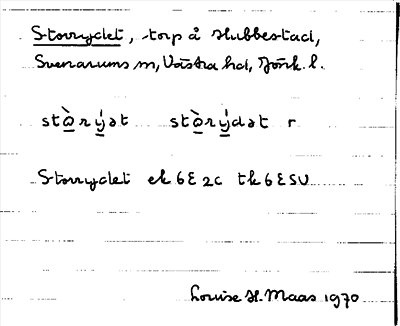 Storrydet, torp å Hubbestad,
Svenarums sn, Västra hd, Jönk. l.
stòrýət stòrýdət r
Storrydet ek 6E2c tk 6ESV
Louise H. Maas 1970